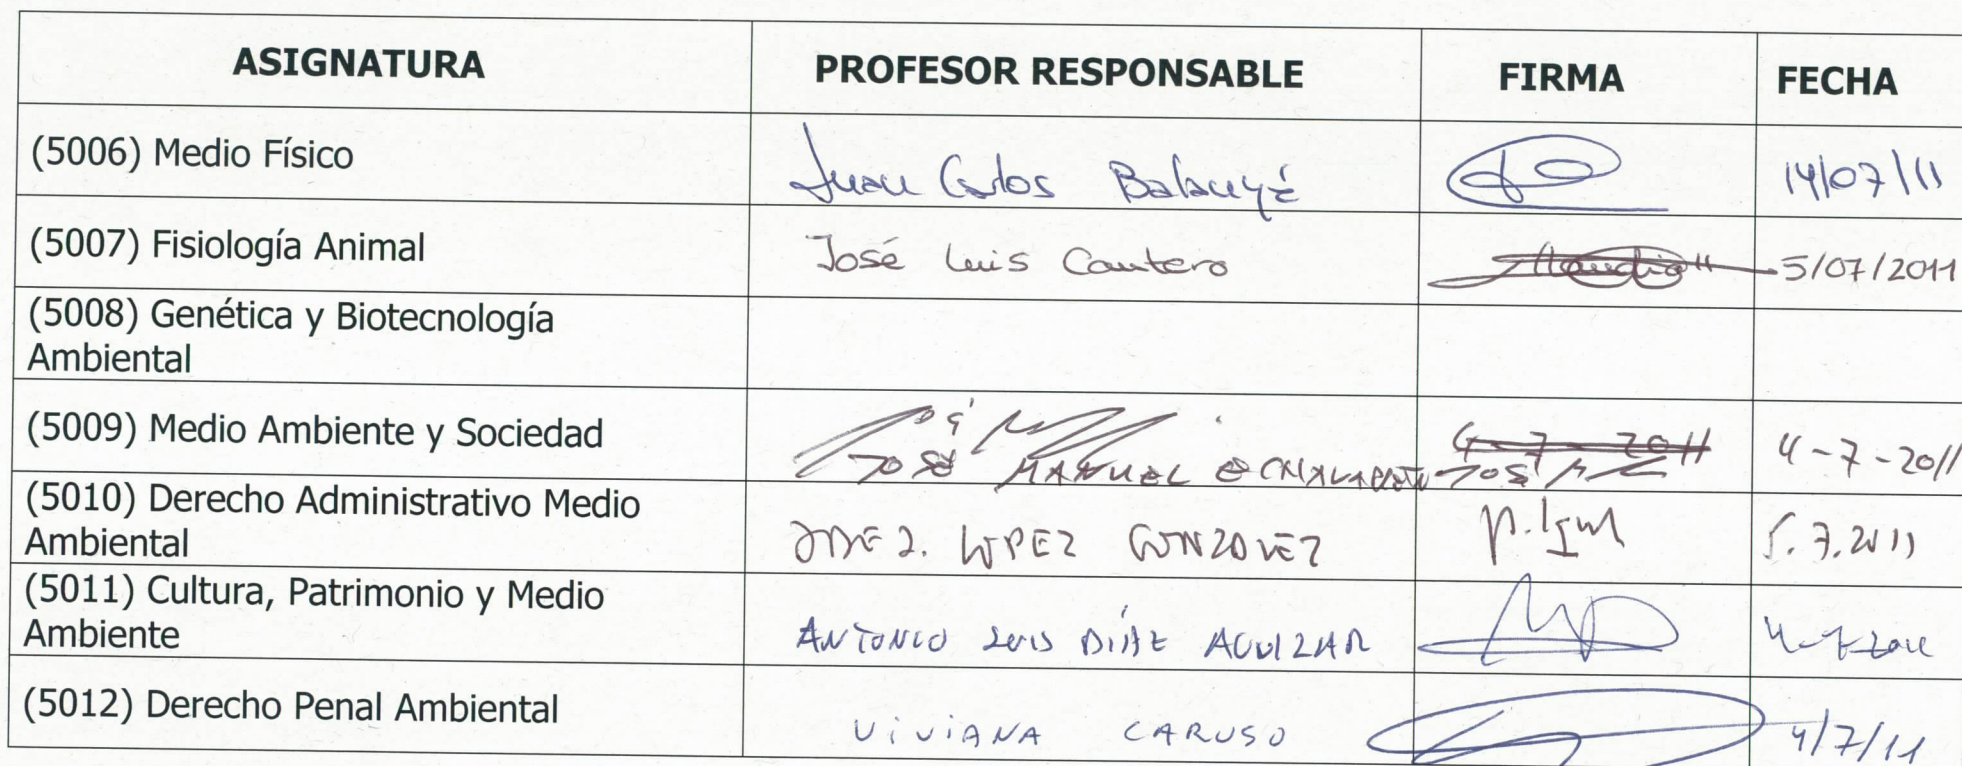 ASIGNATURA PROFESOR RESPONSABLE FIRMA FECHA
(5006) Medio Físico Juan Carlos Balanyá 14/07/11
(5007) Fisiología Animal José Luis Cantero 5/07/2011
(5008) Genética y Biotecnología
Ambiental
(5009) Medio Ambiente y Sociedad JOSÉ MANUEL 4-7-2011 4-7-2011
(5010) Derecho Administrativo Medio
Ambiental JOSE I. LOPEZ GONZALEZ 5.7.2011
(5011) Cultura, Patrimonio y Medio
Ambiente ANTONIO LUIS DÍAZ AGUILAR
(5012) Derecho Penal Ambiental VIVIANA CARUSO 4/7/11